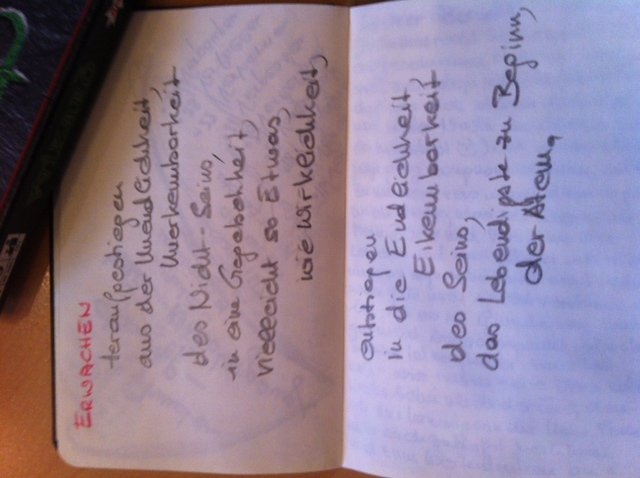 ERWACHEN
heraufgestiegen
aus der Unendlichkeit,
Unerkennbarkeit
des Nicht-Seins,
in eine Gegebenheit,
vielleicht so Etwas,
wie Wirklichkeit,
in die Endlichkeit,
Erkennbarkeit
des Seins,
das Lebendigste zu Beginn,
der Atem.